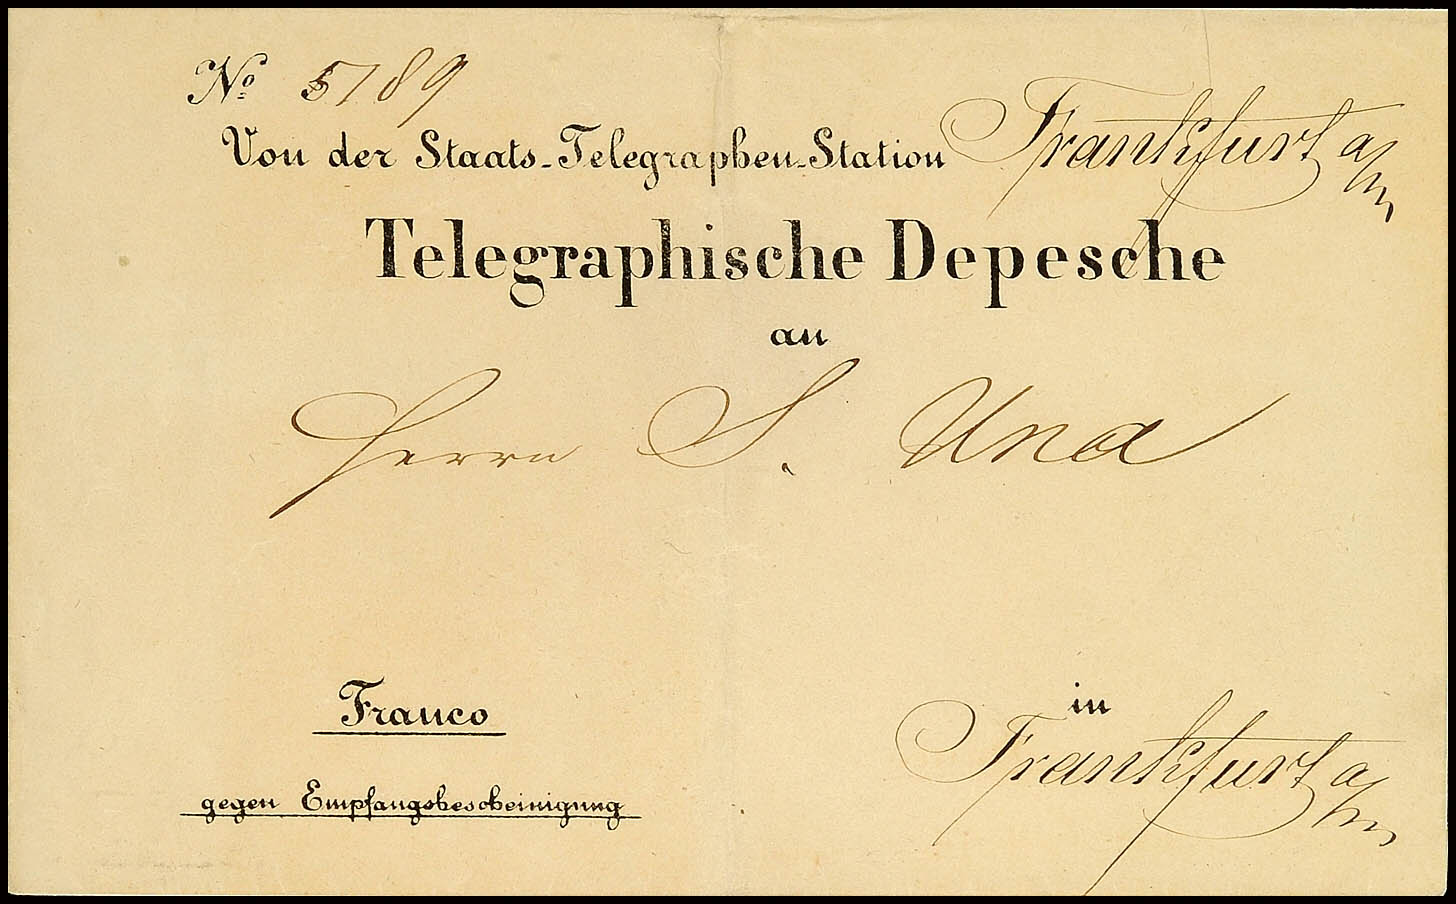 No 5189
Von der Staats-Telegraphen-Station Frankfurt a/m
Telegraphische Depesche
an
Herrn S. Una
Franco
gegen Empfangsbescheinigung
in
Frankfurt a/m